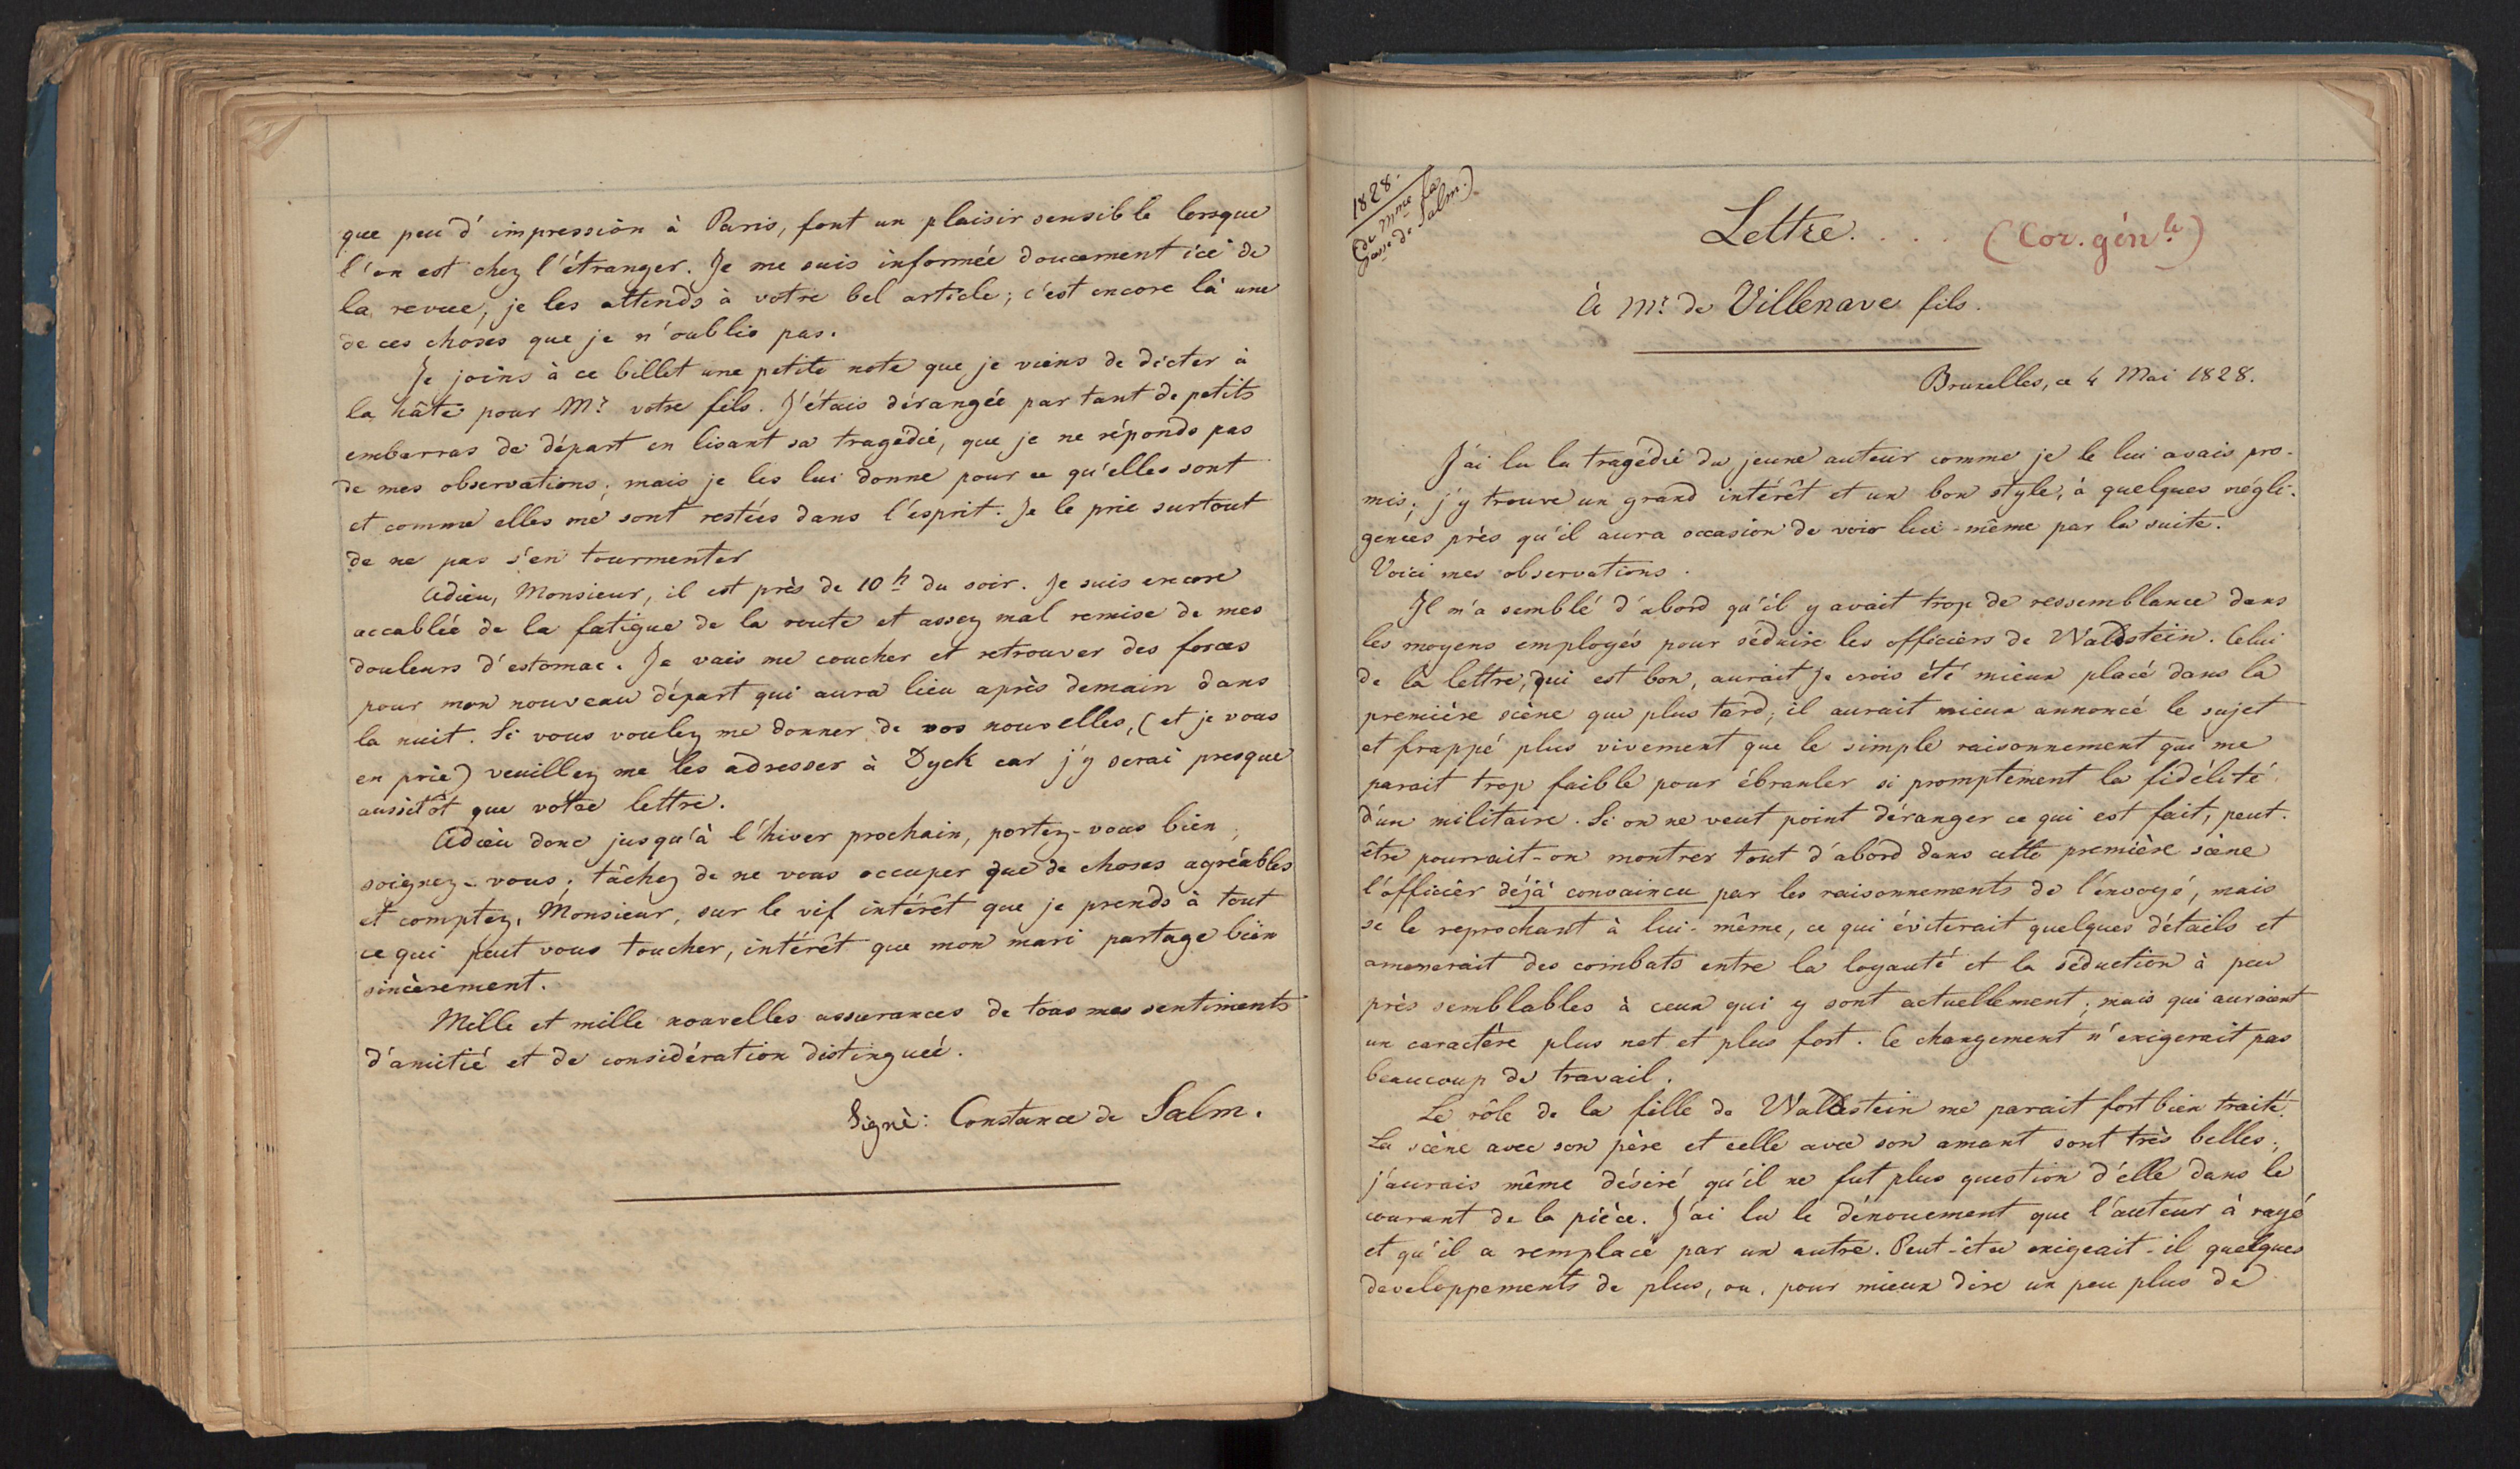 que peu d'impression à Paris, font un plaisir sensible lorsque
l'on est chez l'étranger. Je me suis informée doucement ici de
la revue, je les attends à votre bel article; c'est encore là une
de ces choses que je n'oublie pas.
Je joins à ce billet une petite note que je viens de dicter à
la hâte pour Mr votre fils. J'étais dérangée par tant de petits
embarras de départ en lisant sa tragédie, que je ne réponds pas
de mes observations; mais je les lui donne pour ce qu'elles sont
et comme elles me sont restées dans l'esprit. Je le prie surtout
de ne pas s'en tourmenter
Adieu, Monsieur, il est près de 10h du soir. Je suis encore
accablée de la fatigue de la route et assez mal remise de mes
douleurs d'estomac. Je vais me coucher et retrouver des forces
pour mon nouveau départ qui aura lieu après demain dans
la nuit. Si vous voulez me donner de vos nouvelles, (et je vous
en prie) veuillez me les adresser à Dyck car j'y serai presque
aussitôt que votre lettre.
Adieu donc jusqu'à l'hiver prochain, portez-vous bien,
soignez-vous; tâchez de ne vous occuper que de choses agréables
et comptez, Monsieur, sur le vif intérêt que je prends à tout
ce qui peut vous toucher, intérêt que mon mari partage bien
sincèrement.
Mille et mille nouvelles assurances de tous mes sentiments
d'amitié et de considération distinguée.
Signé: Constance de Salm.
1828.
(de Mme la
Psse de Salm.)
Lettre. . . . (Cor. génle)
À Mr de Villenave fils.
Bruxelles, ce 4 Mai 1828.
J'ai lu la tragédie du jeune auteur comme je le lui avais pro-
mis; j'y trouve un grand intérêt et un bon style, à quelques négli-
gences près qu'il aura occasion de voir lui-même par la suite.
Voici mes observations.
Il m'a semblé d'abord qu'il y avait trop de ressemblance dans
les moyens employés pour séduire les officiers de Waldstein. Celui
de la lettre, qui est bon, aurait je crois été mieux placé dans la
première scène que plus tard; il aurait mieux annoncé le sujet
et frappé plus vivement que le simple raisonnement qui me
parait trop faible pour ébranler si promptement la fidélité
d'un militaire. Si on ne veut point déranger ce qui est fait, peut-
être pourrait-on montrer tout d'abord dans cette première scène
l'officier déjà convaincu par les raisonnements de l'envoyé, mais
se le reprochant à lui-même, ce qui éviterait quelques détails et
amenerait des combats entre la loyauté et la séduction à peu
près semblables à ceux qui y sont actuellement; mais qui auraient
un caractère plus net et plus fort. Ce changement n'exigerait pas
beaucoup de travail.
Le rôle de la fille de Waldstein me parait fort bien traité.
La scène avec son père et celle avec son amant sont très belles;
j'aurais même désiré qu'il ne fut plus question d'elle dans le
courant de la pièce. J'ai lu le dénouement que l'auteur à rayé
et qu'il a remplacé par un autre. Peut-être exigeait-il quelques
developpements de plus, ou, pour mieux dire un peu plus de